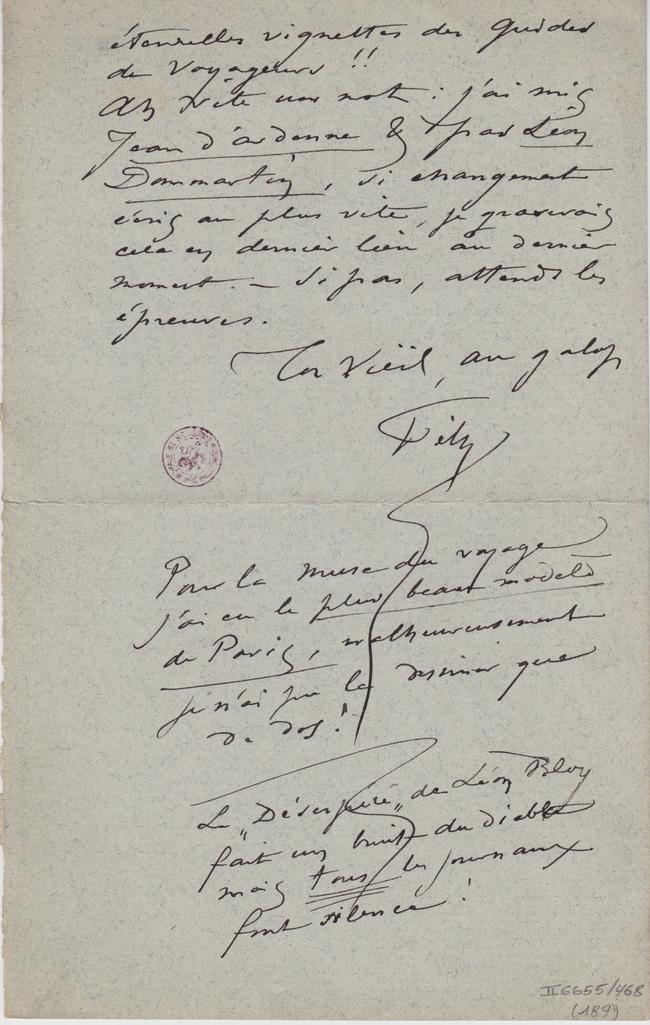 éternelles vignettes des guides
de voyageurs !!
Ah vite un mot : j'ai mis
Jean d'ardenne & par Léon
Dommartin, si changement
écris au plus vite, je graverais
cela en dernier lieu au dernier
moment. — Si pas, attends les
épreuves.
Ton Vieil, au galop
Fély
Pour la muse du voyage
j'ai eu le plus beau modèle
de Paris, malheureusement
je n'ai pu la dessiner que
de dos !
Le „Désespéré„ de Léon Bloy
fait un bruit du diable
mais tous les journaux
font silence !
II 6655/468
(189)